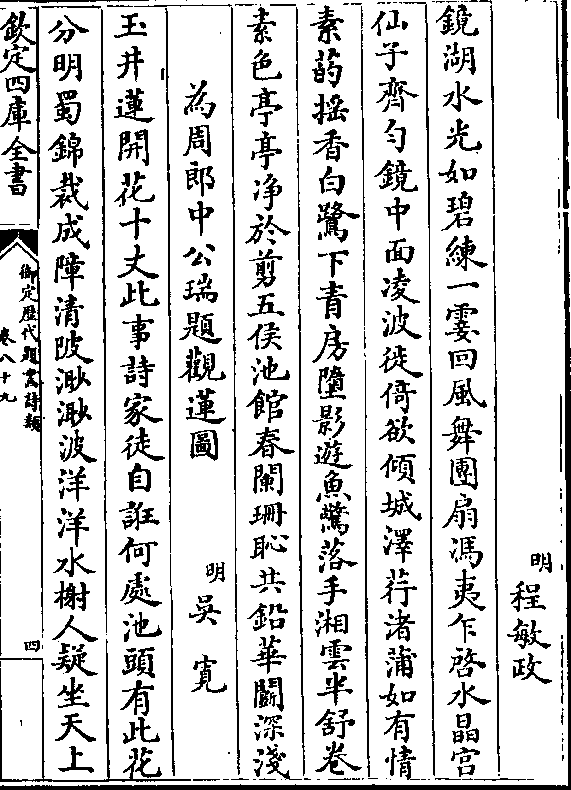 明　程敏政
鏡湖水光如碧練一霎回風舞團扇馮夷乍啓水晶宮
仙子齊勻鏡中面凌波徙倚欲傾城澤荇渚蒲如有情
素药揺香白鷺下青房墮影遊魚驚落手湘雲半舒卷
素色亭亭净於剪五侯池館春闌珊恥共鉛華鬬深淺
為周郎中公瑞題觀蓮圖　明　吳寛
玉井蓮開花十丈此事詩家徒自誑何處池頭有此花
分明蜀錦裁成障清陂渺渺波洋洋水榭人疑坐天上
欽定四庫全書
御定歴代題畫詩類
卷八十九
四